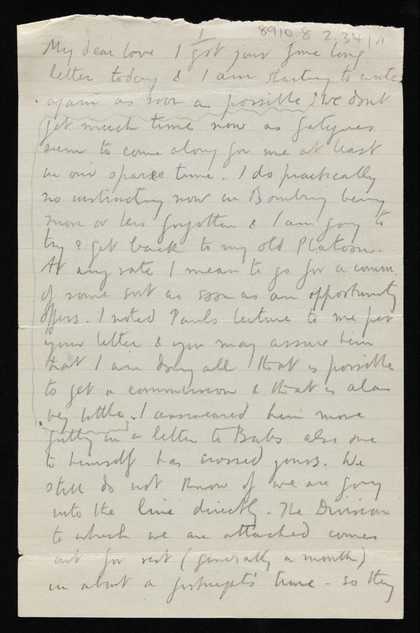 1
8910.8.2.34/11
My dear love I got your fine long
letter today & I am starting to write
again as soon as possible. We don't
get much time now as fatigues
seem to come along for me at least
in our spare time. I do practically
no instructing now in Bombing being
more or less forgotten & I am going to
try & get back to my old Platoon.
At any rate I mean to go for a comm.
of some sort as soon as an opportunity
offers. I noted Pauls lecture to me per
your letter & you may assure him
that I am doing all that is possible
to get a commission & that is alas
very little. I answered him more
fully in a letter to Babs also one
to himself has crossed yours. We
still do not know if we are going
into the line directly. The Division
to which we are attached comes
out for rest (generally a month)
in about a fortnight's time - so they